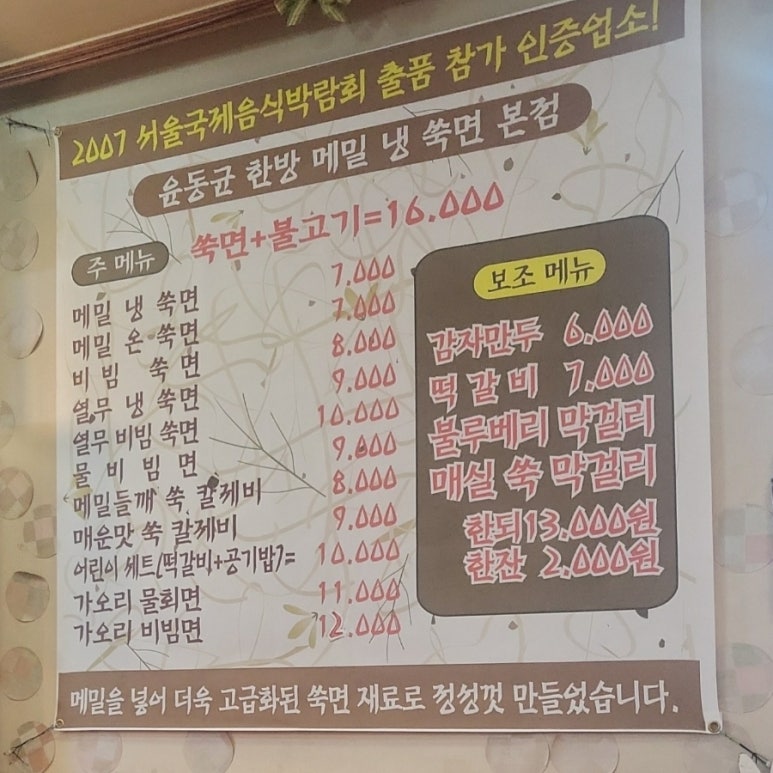 2007 서울국제음식박람회 출품 참가 인증업소!
윤동균 한방 메밀 냉 쑥면 본점
쑥면+불고기=16.000
주 메뉴
메밀 냉 쑥면 7.000
메밀 온 쑥면 7.000
비 빔 쑥 면 8.000
열무 냉 쑥면 9.000
열무 비빔 쑥면 10.000
물 비 빔 면 9.000
메밀들깨 쑥 칼제비 8.000
매운맛 쑥 칼제비 9.000
어린이 쎄트(떡갈비+공기밥)= 10.000
가오리 물회면 11.000
가오리 비빔면 12.000
보조 메뉴
감자만두 6.000
떡 갈 비 7.000
블루베리 막걸리
매실 쑥 막걸리
한되13.000원
한잔 2.000원
메밀을 넣어 더욱 고급화된 쑥면 재료로 정성껏 만들었습니다.